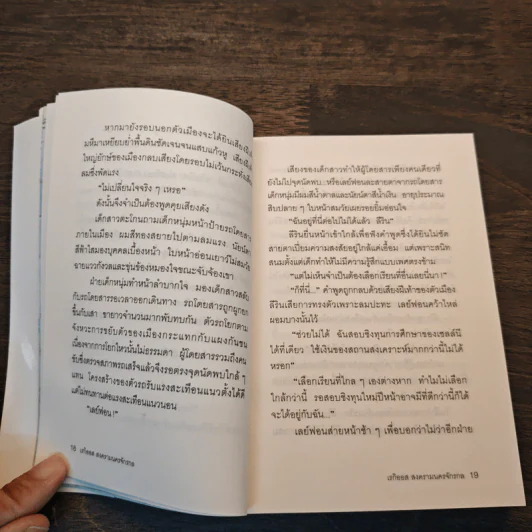 หากมายังรอบนอกตัวเมืองจะได้ยินเสียงฝี
มหึมาเหยียบย่ำพื้นดินชัดเจนจนแสบแก้วหู เสียงฝี
ใหญ่ยักษ์ของเมืองกลบเสียงโดยรอบไม่เว้นกระทั่งเสีย
ลมซึ่งพัดแรง
"ไม่เปลี่ยนใจจริง ๆ เหรอ"
ดังนั้นจึงจำเป็นต้องพูดคุยเสียงดัง
เด็กสาวตะโกนถามเด็กหนุ่มหน้าป้ายรถโดยสา
ภายในเมือง ผมสีทองสยายไปตามลมแรง นัยน์ตา
สีฟ้าใสมองบุคคลเบื้องหน้า ใบหน้าอ่อนเยาว์ไม่สมวัย
ฉายแววกังวลและขุ่นข้องหมองใจขณะจับจ้องเขา
ฝ่ายเด็กหนุ่มทำหน้าลำบากใจ มองเด็กสาวสลับ
กับรถโดยสารรอเวลาออกเดินทาง รถโดยสารถูกยก
ขึ้นกับเสา ขายาวจำนวนมากพับทบกัน ตัวรถโยกตาม
จังหวะการขยับตัวของเมืองกระแทกกับแผงกันชน
เนื่องจากการโยกไหวนั้นไม่ธรรมดา ผู้โดยสารรวมถึงคน
ขับซึ่งตรวจสภาพรถเสร็จแล้วจึงรอตรงจุดนัดพบใกล้ ๆ
แทน โครงสร้างของตัวรถรับแรงสะเทือนแนวตั้งได้ดี
แต่ไม่ทนทานต่อแรงสะเทือนแนวนอน
"เลย์ฟอน!"
18 เรกิออส สงครามนครจักรกล
เสียงของเด็กสาวทำให้ผู้โดยสารเพียงคนเดียวที่
ยังไม่ไปจุดนัดพบ...หรือเลย์ฟอนละสายตาจากรถโดยสาร
เด็กหนุ่มมีผมสีน้ำตาลและนัยน์ตาสีน้ำเงิน อายุประมาณ
สิบปลาย ๆ ใบหน้าสมวัยเผยรอยยิ้มอ่อนใจ
"ฉันอยู่ที่นี่ต่อไปไม่ได้แล้ว ลีริน"
ลีรินยื่นหน้าเข้าใกล้เพื่อฟังคำพูดซึ่งได้ยินไม่ชัด
สายตาเปี่ยมความสงสัยอยู่ใกล้แค่เอื้อม แต่เพราะสนิท
สนมตั้งแต่เด็กทำให้ไม่มีความรู้สึกแบบเพศตรงข้าม
"แต่ไม่เห็นจำเป็นต้องเลือกเรียนที่อื่นเลยนี่นา!"
"ก็ที่นี่..." คำพูดถูกกลบด้วยเสียงฝีเท้าของตัวเมือง
ลีรินเสียการทรงตัวเพราะลมปะทะ เลย์ฟอนคว้าไหล่
ผอมบางนั้นไว้
"ช่วยไม่ได้ ฉันสอบชิงทุนการศึกษาของเซลล์นี
ได้ที่เดียว ใช้เงินของสถานสงเคราะห์มากกว่านี้ไม่ได้
หรอก"
"เลือกเรียนที่ไกล ๆ เองต่างหาก ทำไมไม่เลือก
ใกล้กว่านี้ รอสอบชิงทุนใหม่ปีหน้าอาจมีที่ดีกว่านี้ก็ได้
จะได้อยู่กับฉัน..."
เลย์ฟอนส่ายหน้าช้า ๆ เพื่อบอกกว่าไม่ว่าอีกฝ่าย
เรกิออส สงครามนครจักรกล 19